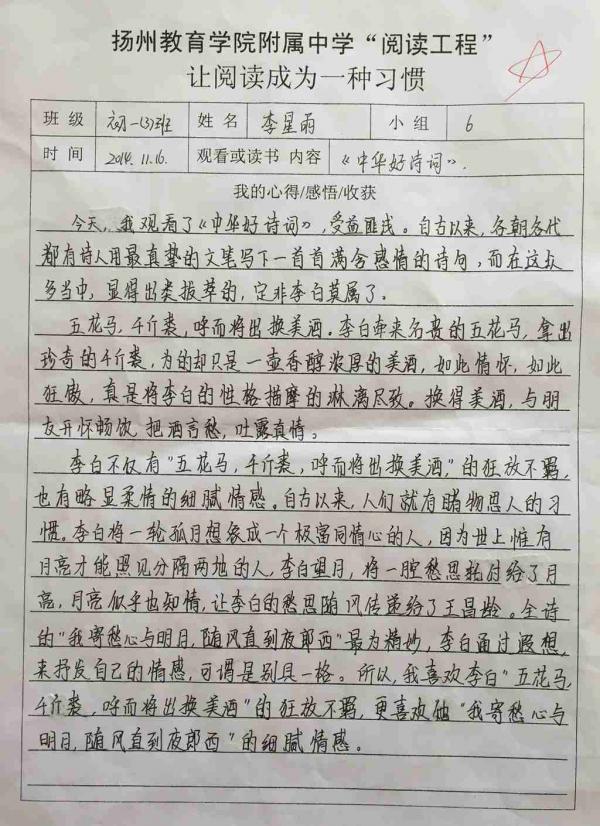 扬州教育学院附属中学“阅读工程”
让阅读成为一种习惯
班 级 初一(3)班 姓 名 李星雨 小 组 6
时 间 2014.11.16. 观看或读书 内容 《中华好诗词》.
我的心得/感悟/收获
今天,我观看了《中华好诗词》,受益匪浅。自古以来,各朝各代
都有诗人用最真挚的文笔写下一首首满含感情的诗句,而在这众
多当中,显得出类拔萃的,定非李白莫属了。
五花马,千斤裘,呼而将出换美酒。李白牵来名贵的五花马,拿出
珍奇的千斤裘,为的却只是一壶香醇浓厚的美酒,如此情怀,如此
狂傲,真是将李白的性格描摩的淋漓尽致。换得美酒,与朋
友开怀畅饮,把酒言愁,吐露真情。
李白不仅有“五花马,千斤裘,呼而将出换美酒,”的狂放不羁,
也有略显柔情的细腻情感。自古以来,人们就有睹物思人的习
惯。李白将一轮孤月想象成一个极富同情心的人,因为世上惟有
月亮才能照见分隔两地的人,李白望月,将一腔愁思托付给了月
亮,月亮似乎也知情,让李白的愁思随风传递给了王昌龄。全诗
的“我寄愁心与明月,随风直到夜郎西”最为精妙,李白通过遐想
来抒发自己的情感,可谓是别具一格。所以,我喜欢李白“五花马,
千斤裘,呼而将出换美酒”的狂放不羁,更喜欢他“我寄愁心与
明月,随风直到夜郎西”的细腻情感。